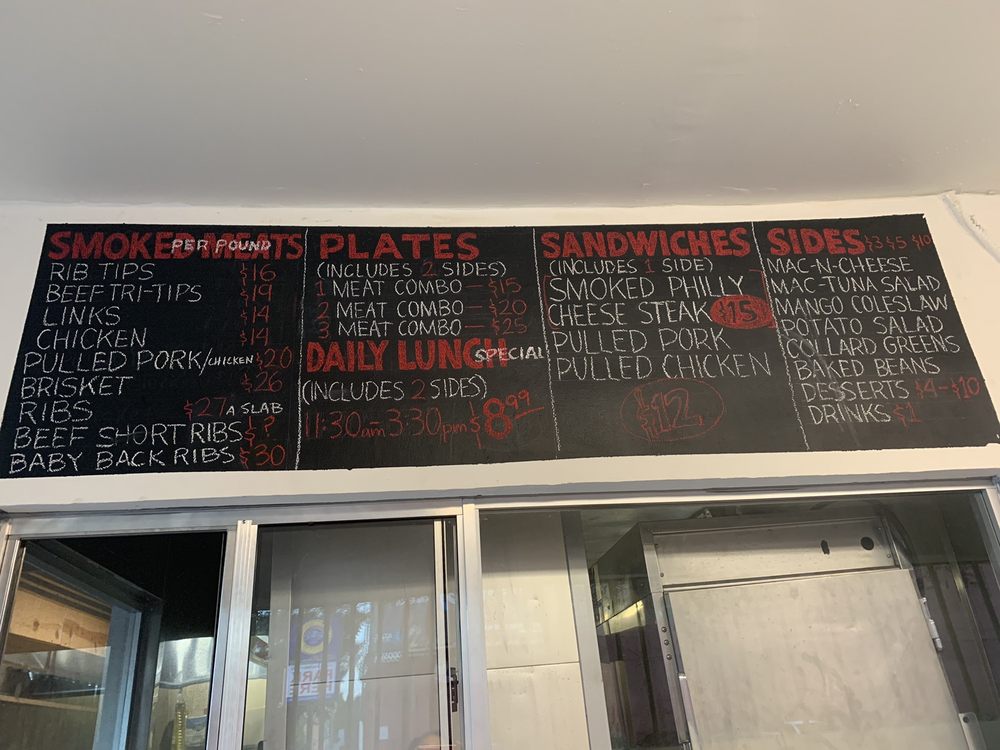 SMOKED MEATS
PER POUND
RIB TIPS $16
BEEF TRI-TIPS $19
LINKS $14
CHICKEN $14
PULLED PORK/CHICKEN $20
BRISKET $26
RIBS $27 A SLAB
BEEF SHORT RIBS $?
BABY BACK RIBS $30
PLATES
(INCLUDES 2 SIDES)
1 MEAT COMBO — $15
2 MEAT COMBO — $20
3 MEAT COMBO — $25
DAILY LUNCH SPECIAL
(INCLUDES 2 SIDES)
11:30am-3:30pm $8.99
SANDWICHES
(INCLUDES 1 SIDE)
SMOKED PHILLY
CHEESE STEAK $15
PULLED PORK
PULLED CHICKEN
$12
SIDES $3 $5 $10
MAC-N-CHEESE
MAC-TUNA SALAD
MANGO COLESLAW
POTATO SALAD
COLLARD GREENS
BAKED BEANS
DESSERTS $4-$10
DRINKS $1